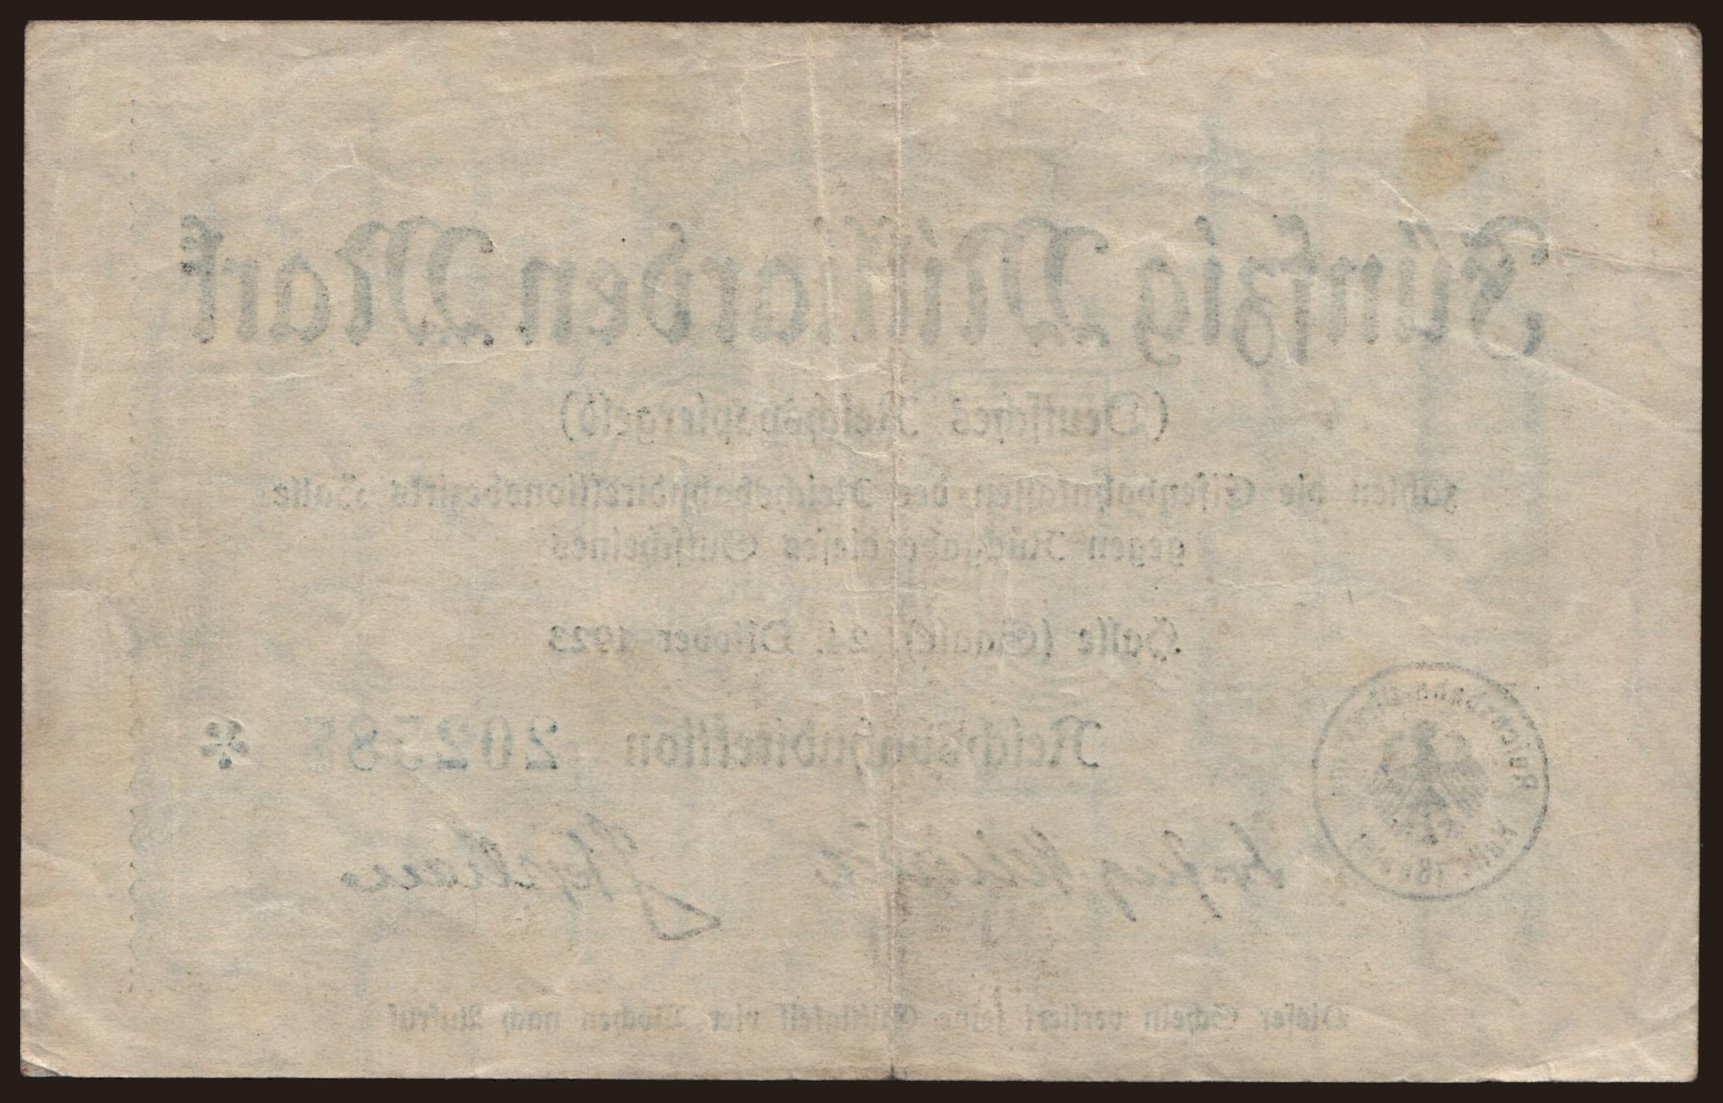 Fünfzig Milliarden Mark
(Deutsches Reichspapiergeld)
zahlen die Eisenbahnkassen des Reichsbahndirektionsbezirks Halle
gegen Rückgabe dieses Gutscheines
Halle (Saale), 24. Oktober 1923
Reichsbahndirektion 20238 *
Reichsbahndirektion Halle (Saale)
Dieser Schein verliert seine Gültigkeit vier Wochen nach Aufruf